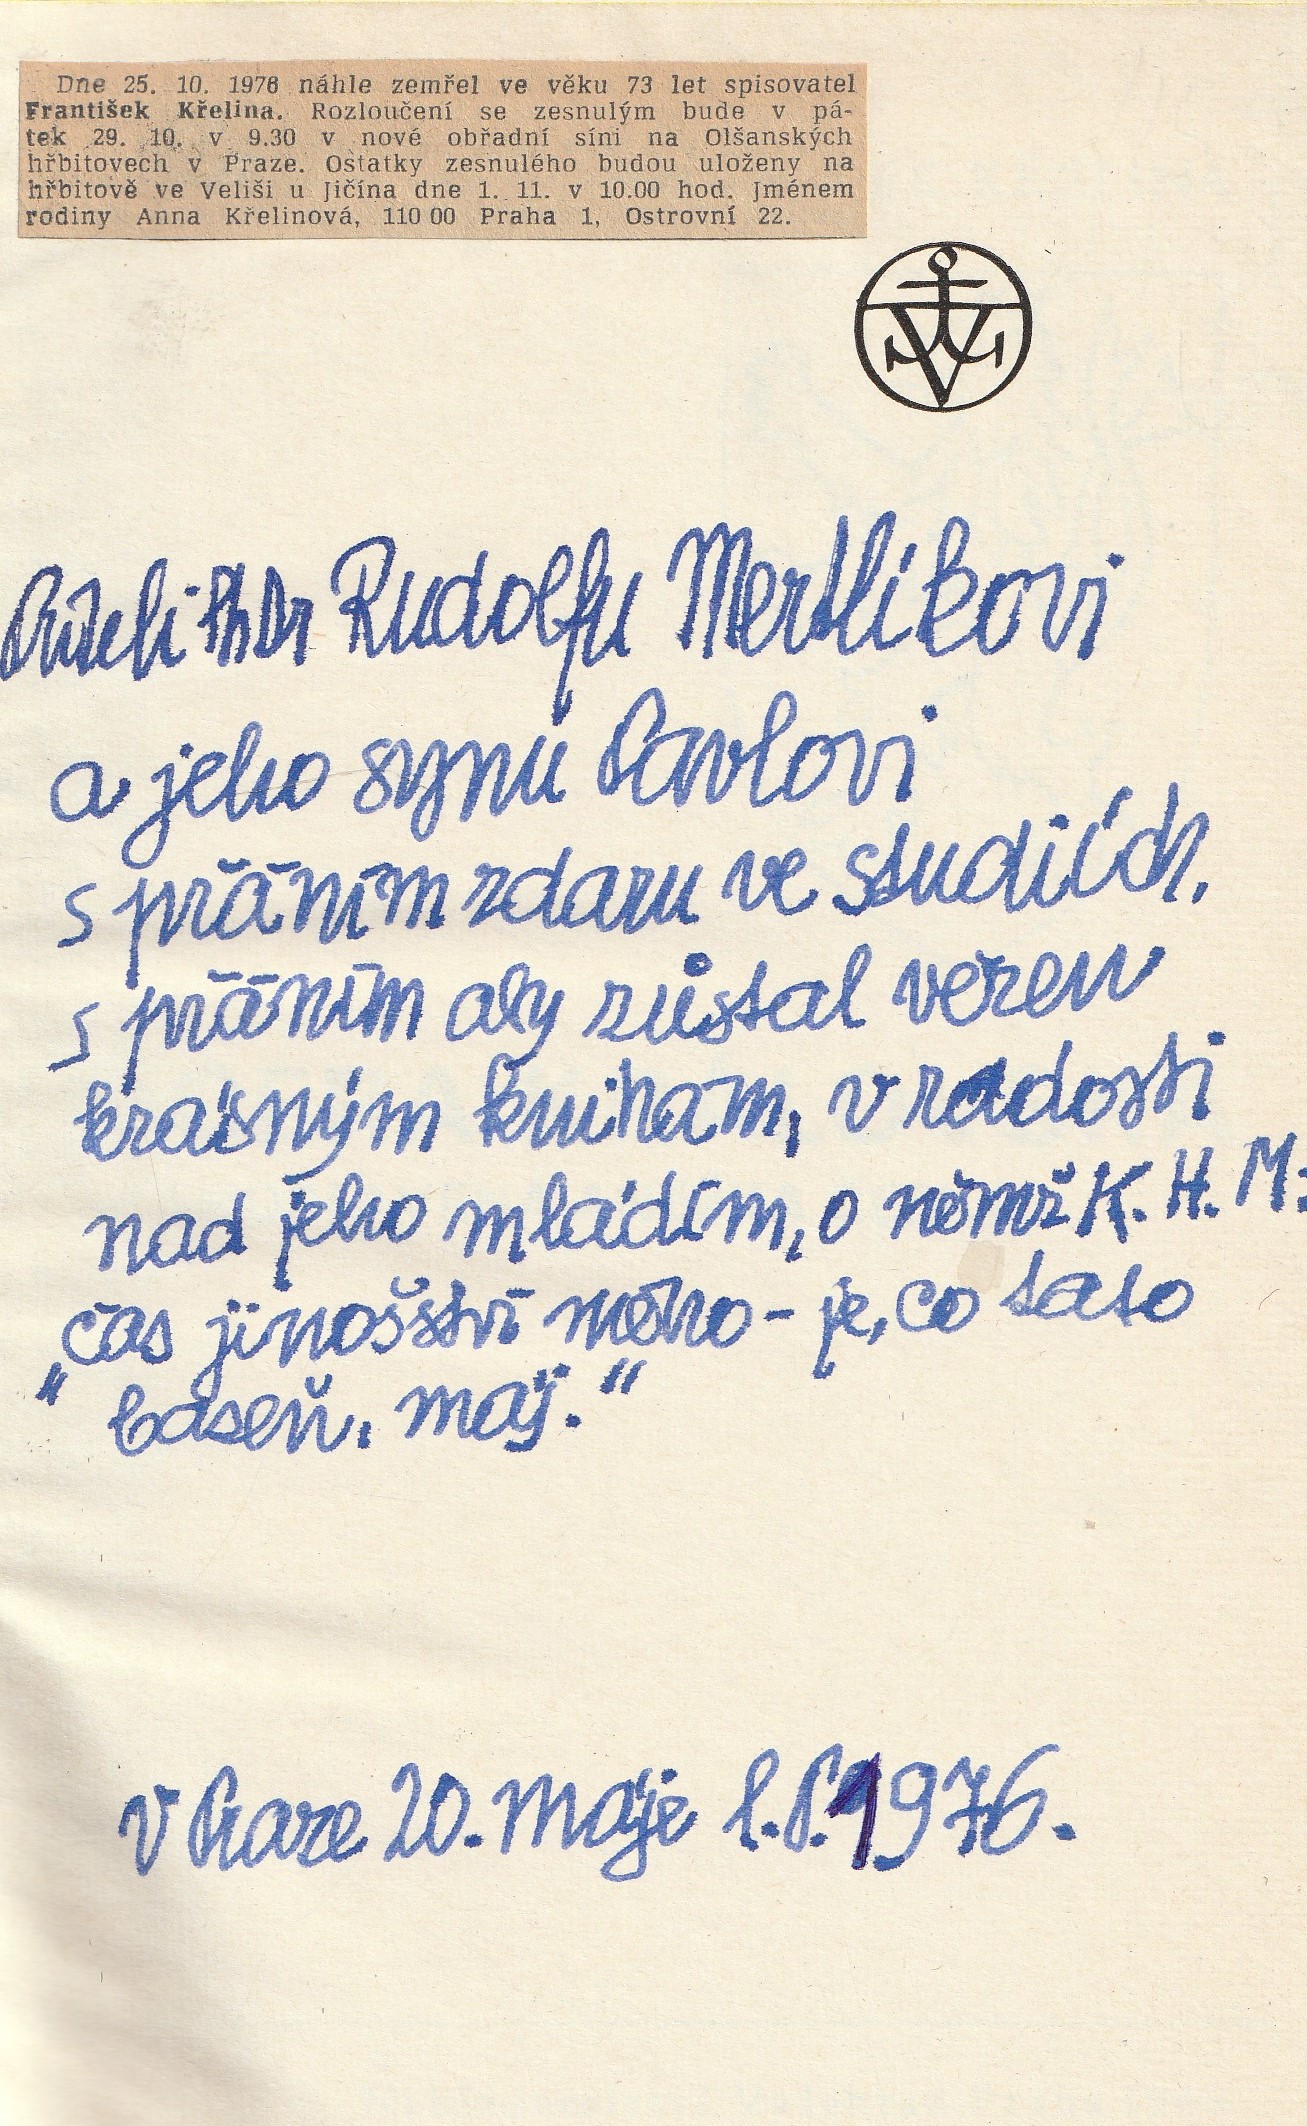 Dne 25. 10. 1976 náhle zemřel ve věku 73 let spisovatel
František Křelina. Rozloučení se zesnulým bude v pá-
tek 29. 10. v 9.30 v nové obřadní síni na Olšanských
hřbitovech v Praze. Ostatky zesnulého budou uloženy na
hřbitově ve Veliši u Jičína dne 1. 11. v 10.00 hod. Jménem
rodiny Anna Křelinová, 110 00 Praha 1, Ostrovní 22.
PhDr Rudolfu Mertlíkovi
a jeho synu Pavlovi
s přáním zdaru ve studiích,
s přáním aby zůstal věren
krásným knihám, v radosti
nad jeho mládím, o němž K. H. M:
„čas jinošství mého – je, co tato
báseň, máj."
V Praze 20. máje l. P. 1976.